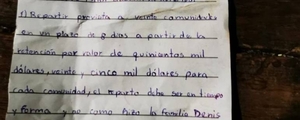 1) Repartir provista a veinte comunidades
en un plazo de 8 dias a partir de la
retención por valor de quinientas mil
dólares, veinte y cinco mil dólares para
cada comunidad, el reparto debe ser en tiempo
y forma y no como hizo la familia Denis